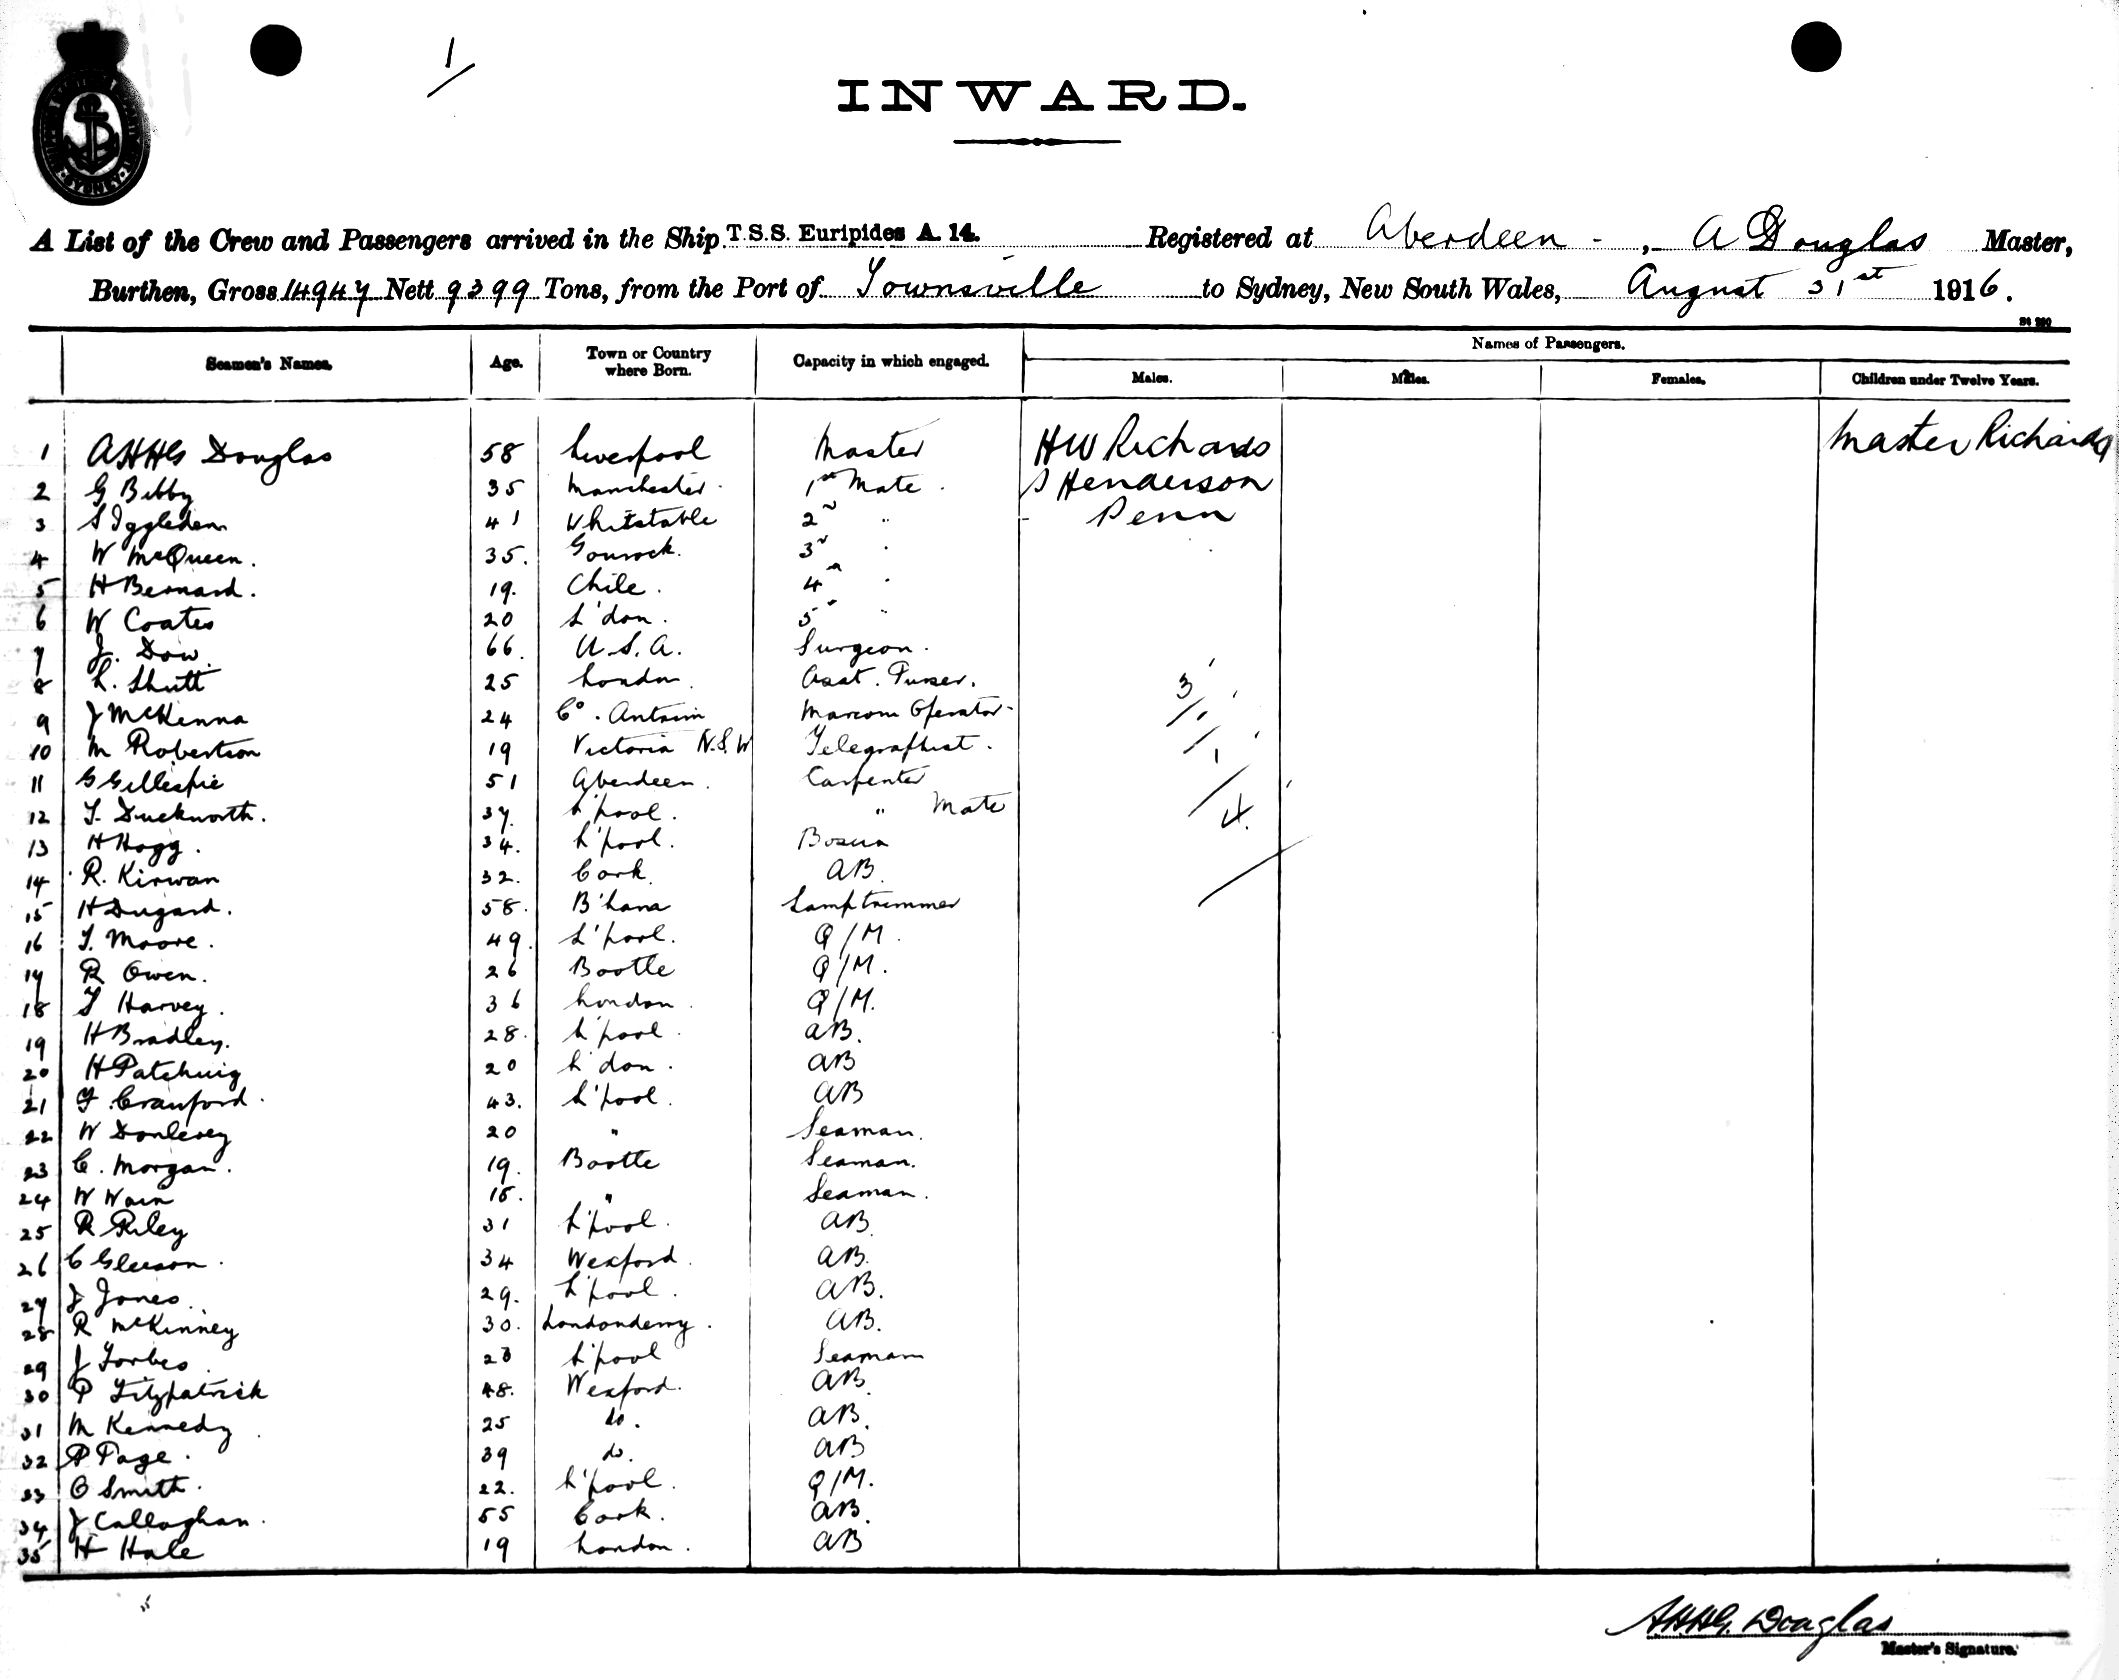 1
INWARD.
A List of the Crew and Passengers arrived in the Ship T.S.S. Euripides A. 14. Registered at Aberdeen - , A Douglas Master,
Burthen, Gross 14947 Nett 9399 Tons, from the Port of Townsville to Sydney, New South Wales, August 31st 1916.
Seamen's Names. Age. Town or Country where Born. Capacity in which engaged. Names of Passengers.
Males. Males. Females. Children under Twelve Years.
1 AHHG Douglas 58 Liverpool Master HW Richards Master Richards
2 G Bibby 35 Manchester 1st Mate. Henderson
3 S Iggleden 41 Whitstable 2nd " Penn
4 W McQueen. 35. Gourock. 3rd "
5 H Bernard. 19. Chile. 4th "
6 W Coates 20 L'don. 5th "
7 J. Dow. 66. U.S.A. Surgeon.
8 L. Shutt 25 London. Asst. Purser. 3
9 J McKenna 24 Co. Antrim Marconi Operator
10 M Robertson 19 Victoria N.S.W Telegraphist. 1
11 G Gillespie 51 Aberdeen. Carpenter
12 T. Duckworth. 37. L'pool. " Mate 4.
13 H Hogg. 34. L'pool. Bosun
14 R. Kirwan 32. Cork. AB.
15 H Dugard. 58. B'hana Lamptrimmer
16 T. Moore. 49. L'pool. Q/M.
17 R Owen. 26 Bootle Q/M.
18 T Harvey. 36 London. Q/M.
19 H Bradley. 28. L'pool. AB.
20 H Patching 20 L'don. AB
21 F. Cranford. 43. L'pool. AB
22 W Donlevey 20 " Seaman.
23 C. Morgan. 19. Bootle Seaman.
24 W Wain 18. " Seaman.
25 R Riley 31 L'pool. AB.
26 C Gleeson. 34 Wexford. AB.
27 J Jones. 29. L'pool. AB.
28 R McKinney 30. Londonderry. AB.
29 J Forbes. 23 L'pool Seaman
30 P Fitzpatrick 48. Wexford. AB.
31 M Kennedy. 25 do. AB.
32 P Page. 39 do. AB
33 C Smith. 22. L'pool. Q/M.
34 J Callaghan. 55 Cork. AB.
35 H Hale 19 London. AB
A.H.H.G. Douglas
Master's Signature.